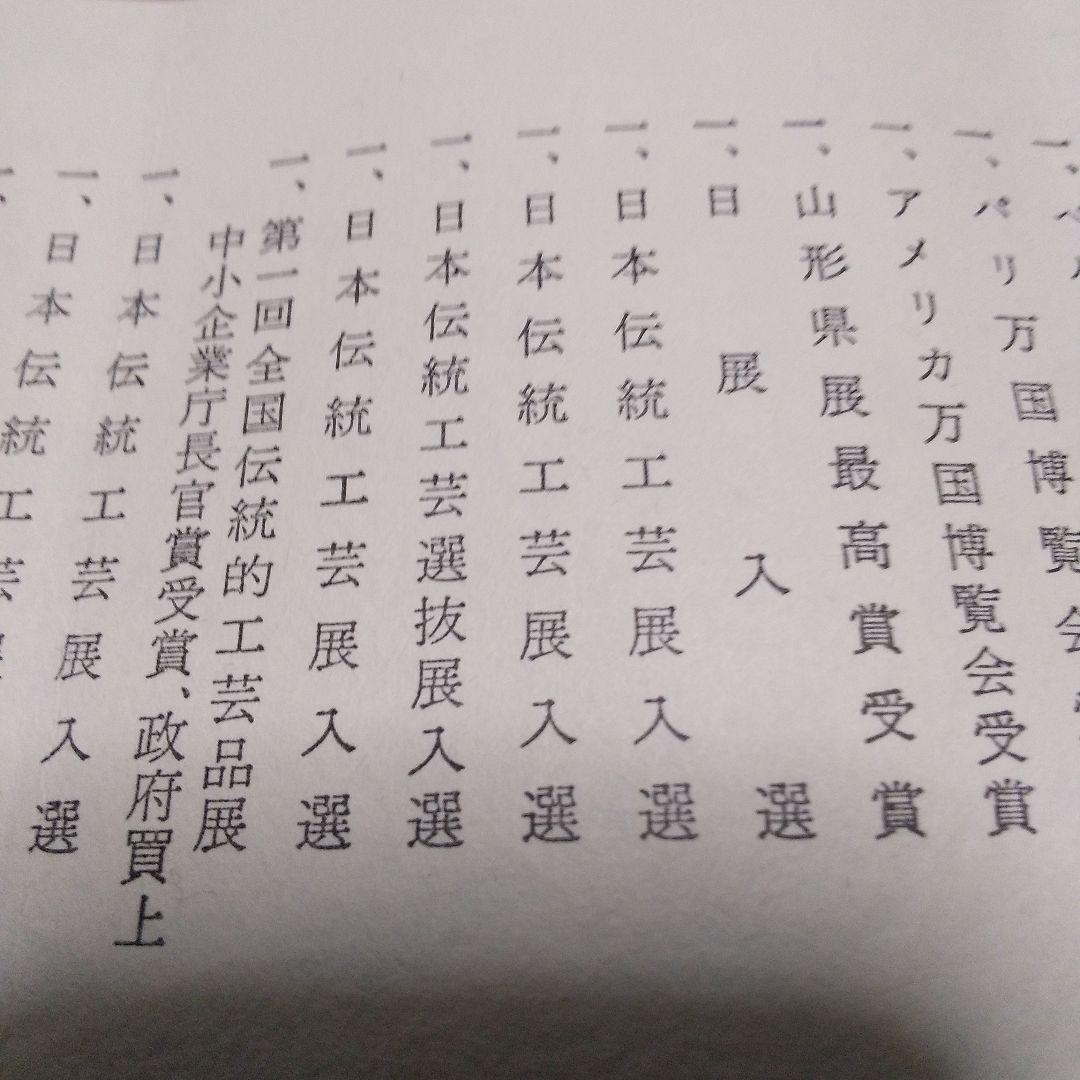 一、パリ万国博覧会受賞
一、アメリカ万国博覧会受賞
一、山形県展最高賞受賞
一、日展入選
一、日本伝統工芸展入選
一、日本伝統工芸展入選
一、日本伝統工芸選抜展入選
一、日本伝統工芸展入選
一、第一回全国伝統的工芸品展
中小企業庁長官賞受賞、政府買上
一、日本伝統工芸展入選
一、日本伝統工芸